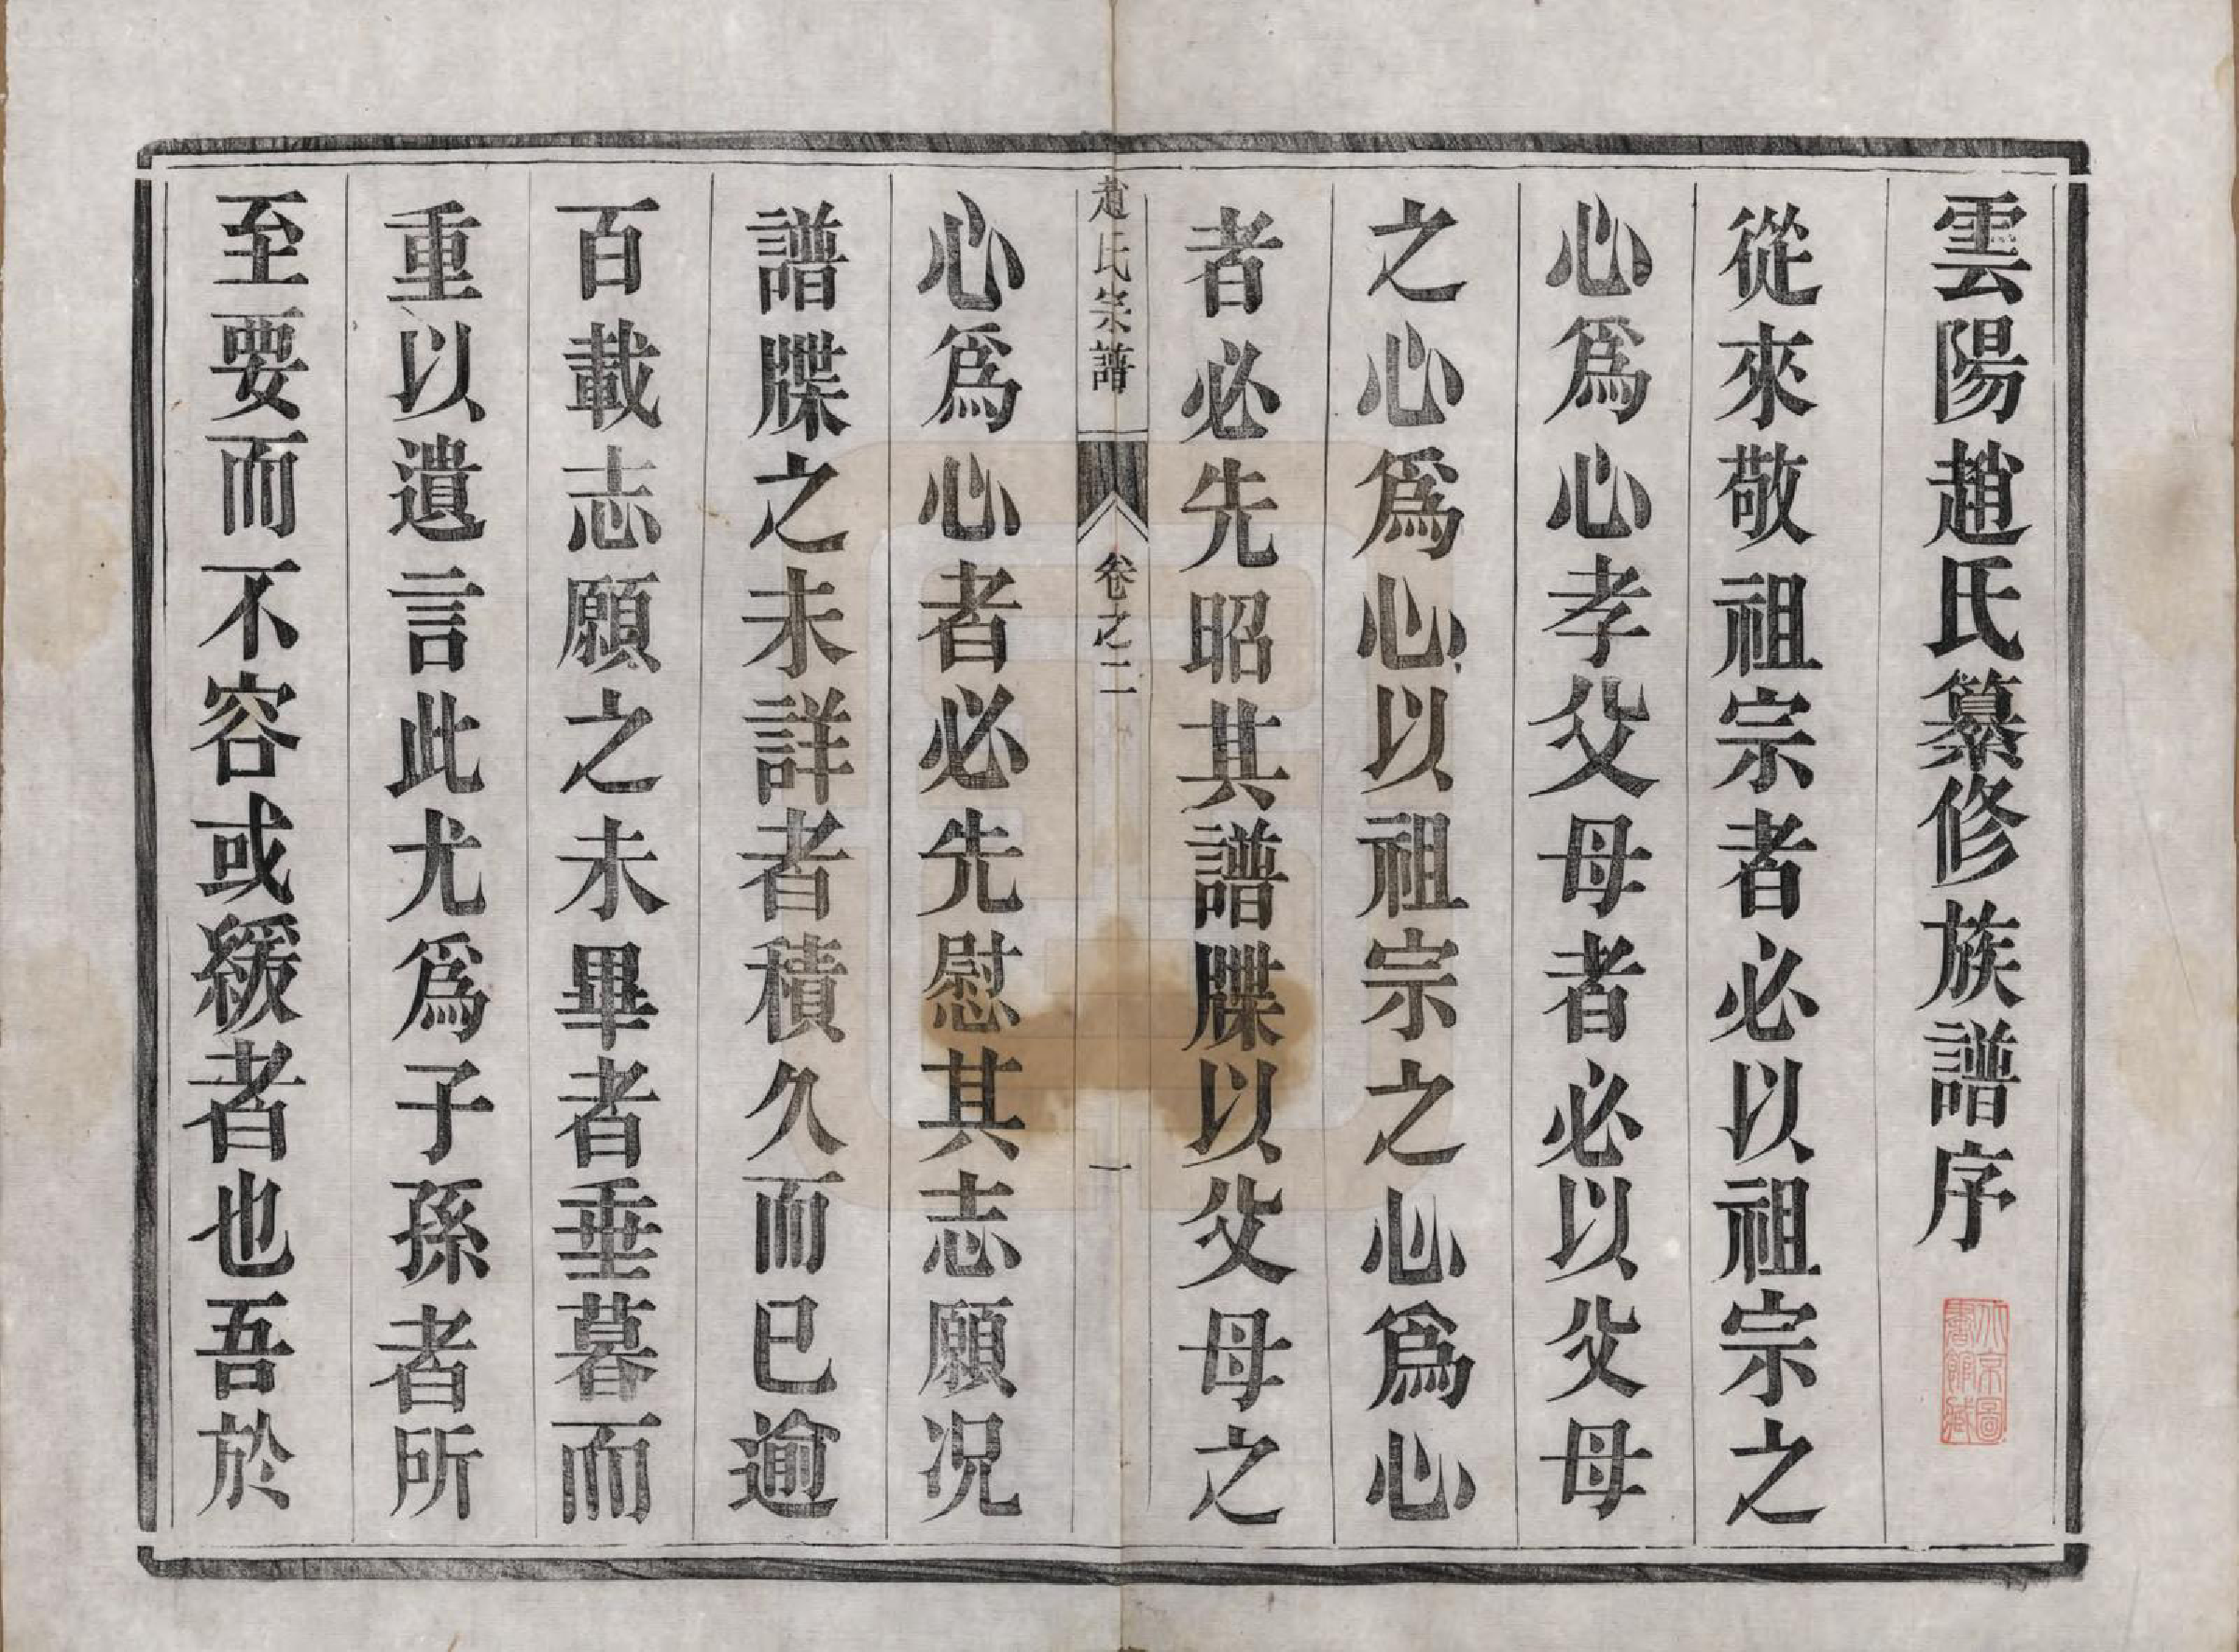 雲陽趙氏纂修族譜序
從來敬祖宗者必以祖宗之
心爲心孝父母者必以父母
之心爲心以祖宗之心爲心
者必先昭其譜牒以父母之
趙氏宗譜
卷之二
一
心爲心者必先慰其志願况
譜牒之未詳者積久而已逾
百載志願之未畢者垂暮而
重以遺言此尤爲子孫者所
至要而不容或緩者也吾於